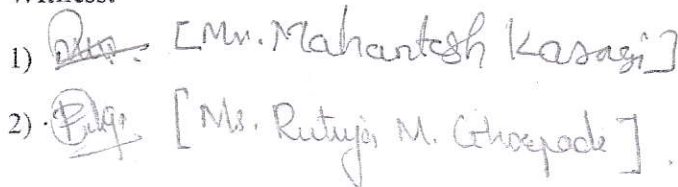 Witness:
1) [Mr. Mahantesh Kasagi]
2) [Ms. Rutuja M. Ghorpade].